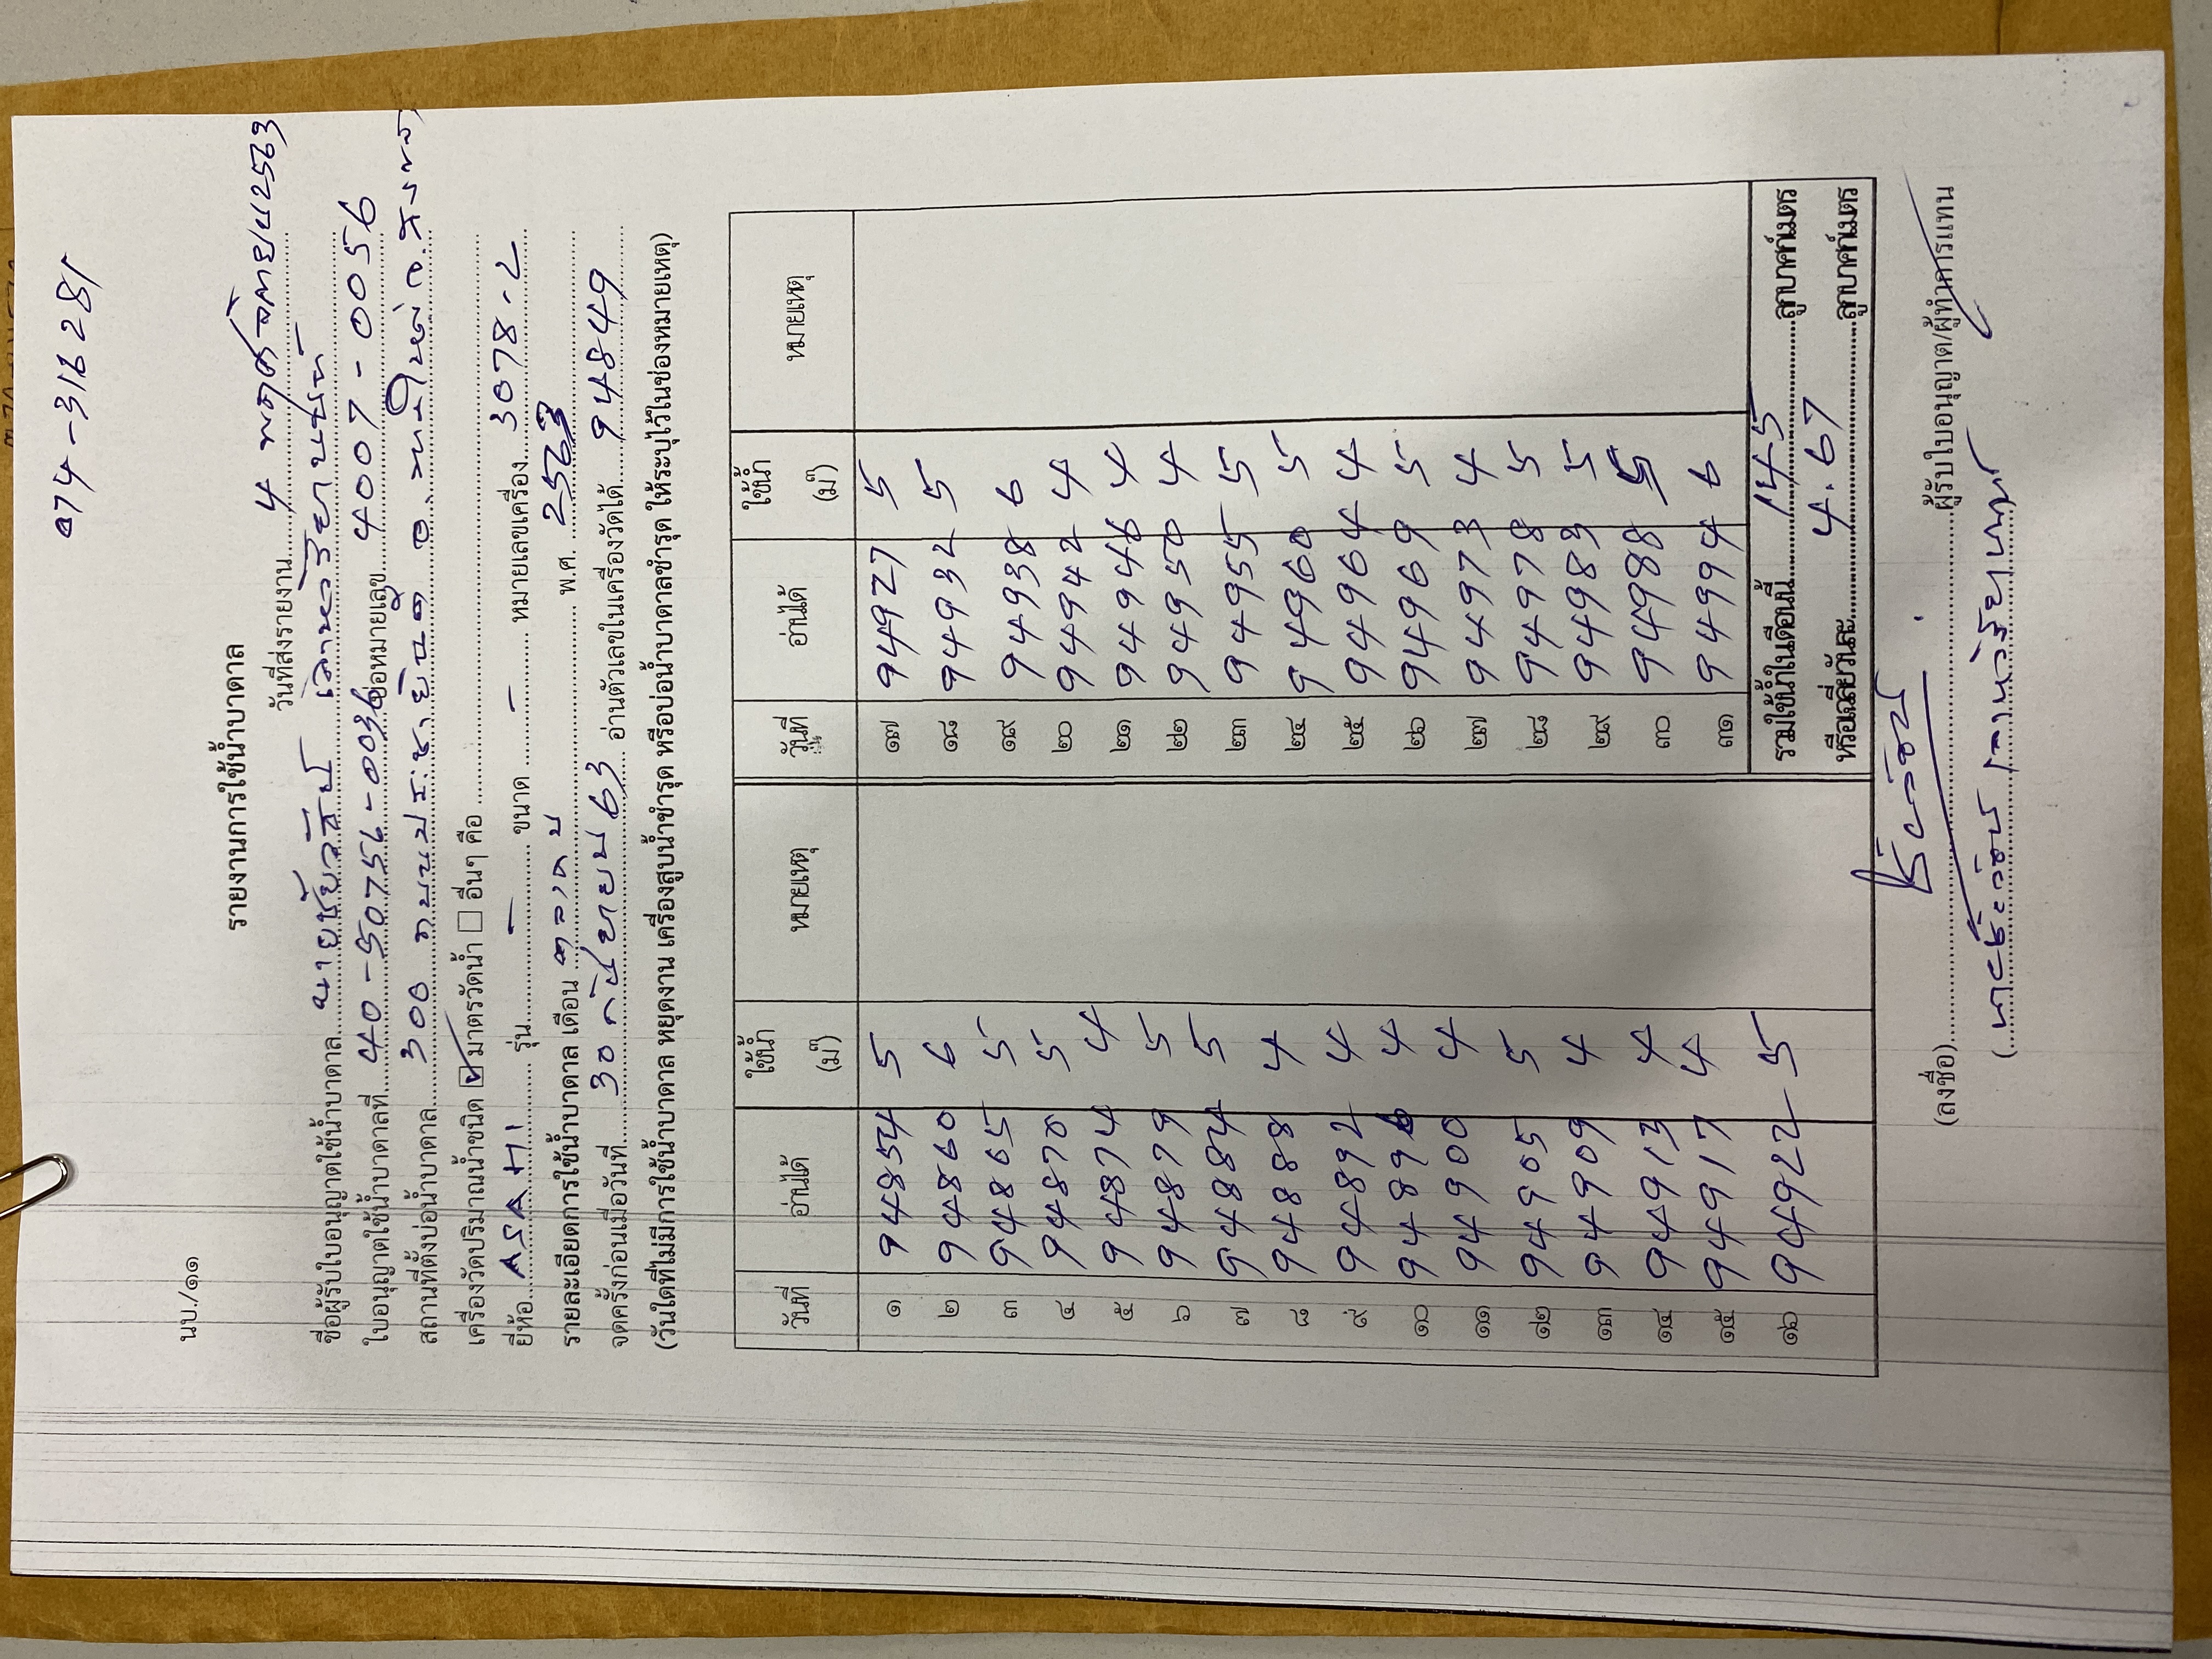 074-316281
นบ./๑๑
รายงานการใช้น้ำบาดาล
วันที่ส่งรายงาน 4 พฤศจิกายน 2563
ชื่อผู้รับใบอนุญาตใช้น้ำบาดาล นายชัยวัธน์
ใบอนุญาตใช้น้ำบาดาลที่ 40-50756-0036 บ่อหมายเลข 4007-0056
สถานที่ตั้งบ่อน้ำบาดาล 300 อ.หาดใหญ่ จ.สงขลา
เครื่องวัดปริมาณน้ำชนิด ☑ มาตรวัดน้ำ ☐ อื่นๆ คือ
ยี่ห้อ ASAHI รุ่น - ขนาด - หมายเลขเครื่อง 3078-2
รายละเอียดการใช้น้ำบาดาล เดือน ตุลาคม พ.ศ. 2563
จดครั้งก่อนเมื่อวันที่ 30 กันยายน 63 อ่านตัวเลขในเครื่องวัดได้ 94849
(วันใดที่ไม่มีการใช้น้ำบาดาล หยุดงาน เครื่องสูบน้ำชำรุด หรือบ่อน้ำบาดาลชำรุด ให้ระบุไว้ในช่องหมายเหตุ)
วันที่ อ่านได้ ใช้น้ำ (ม๓) หมายเหตุ วันที่ อ่านได้ ใช้น้ำ (ม๓) หมายเหตุ
๑ 94854 5 ๑๗ 94927 5
๒ 94860 6 ๑๘ 94932 5
๓ 94865 5 ๑๙ 94938 6
๔ 94870 5 ๒๐ 94942 4
๕ 94874 4 ๒๑ 94946 4
๖ 94879 5 ๒๒ 94950 4
๗ 94884 5 ๒๓ 94955 5
๘ 94888 4 ๒๔ 94960 5
๙ 94892 4 ๒๕ 94964 4
๑๐ 94896 4 ๒๖ 94969 5
๑๑ 94900 4 ๒๗ 94973 4
๑๒ 94905 5 ๒๘ 94978 5
๑๓ 94909 4 ๒๙ 94983 5
๑๔ 94913 4 ๓๐ 94988 5
๑๕ 94917 4 ๓๑ 94994 6
๑๖ 94922 5 รวมใช้น้ำในเดือนนี้ 145 ลูกบาศก์เมตร
หรือเฉลี่ยวันละ 4.67 ลูกบาศก์เมตร
(ลงชื่อ) ผู้รับใบอนุญาต/ผู้ทำการแทน